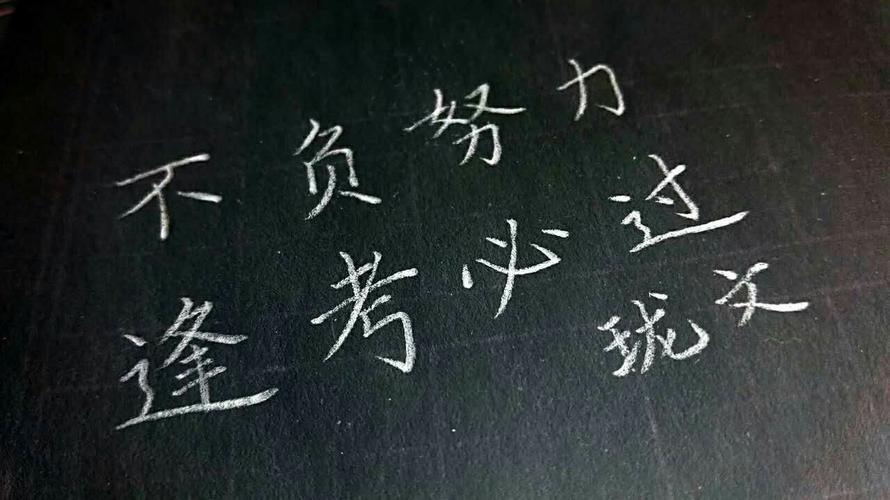 不负努力
逢考必过
珑文